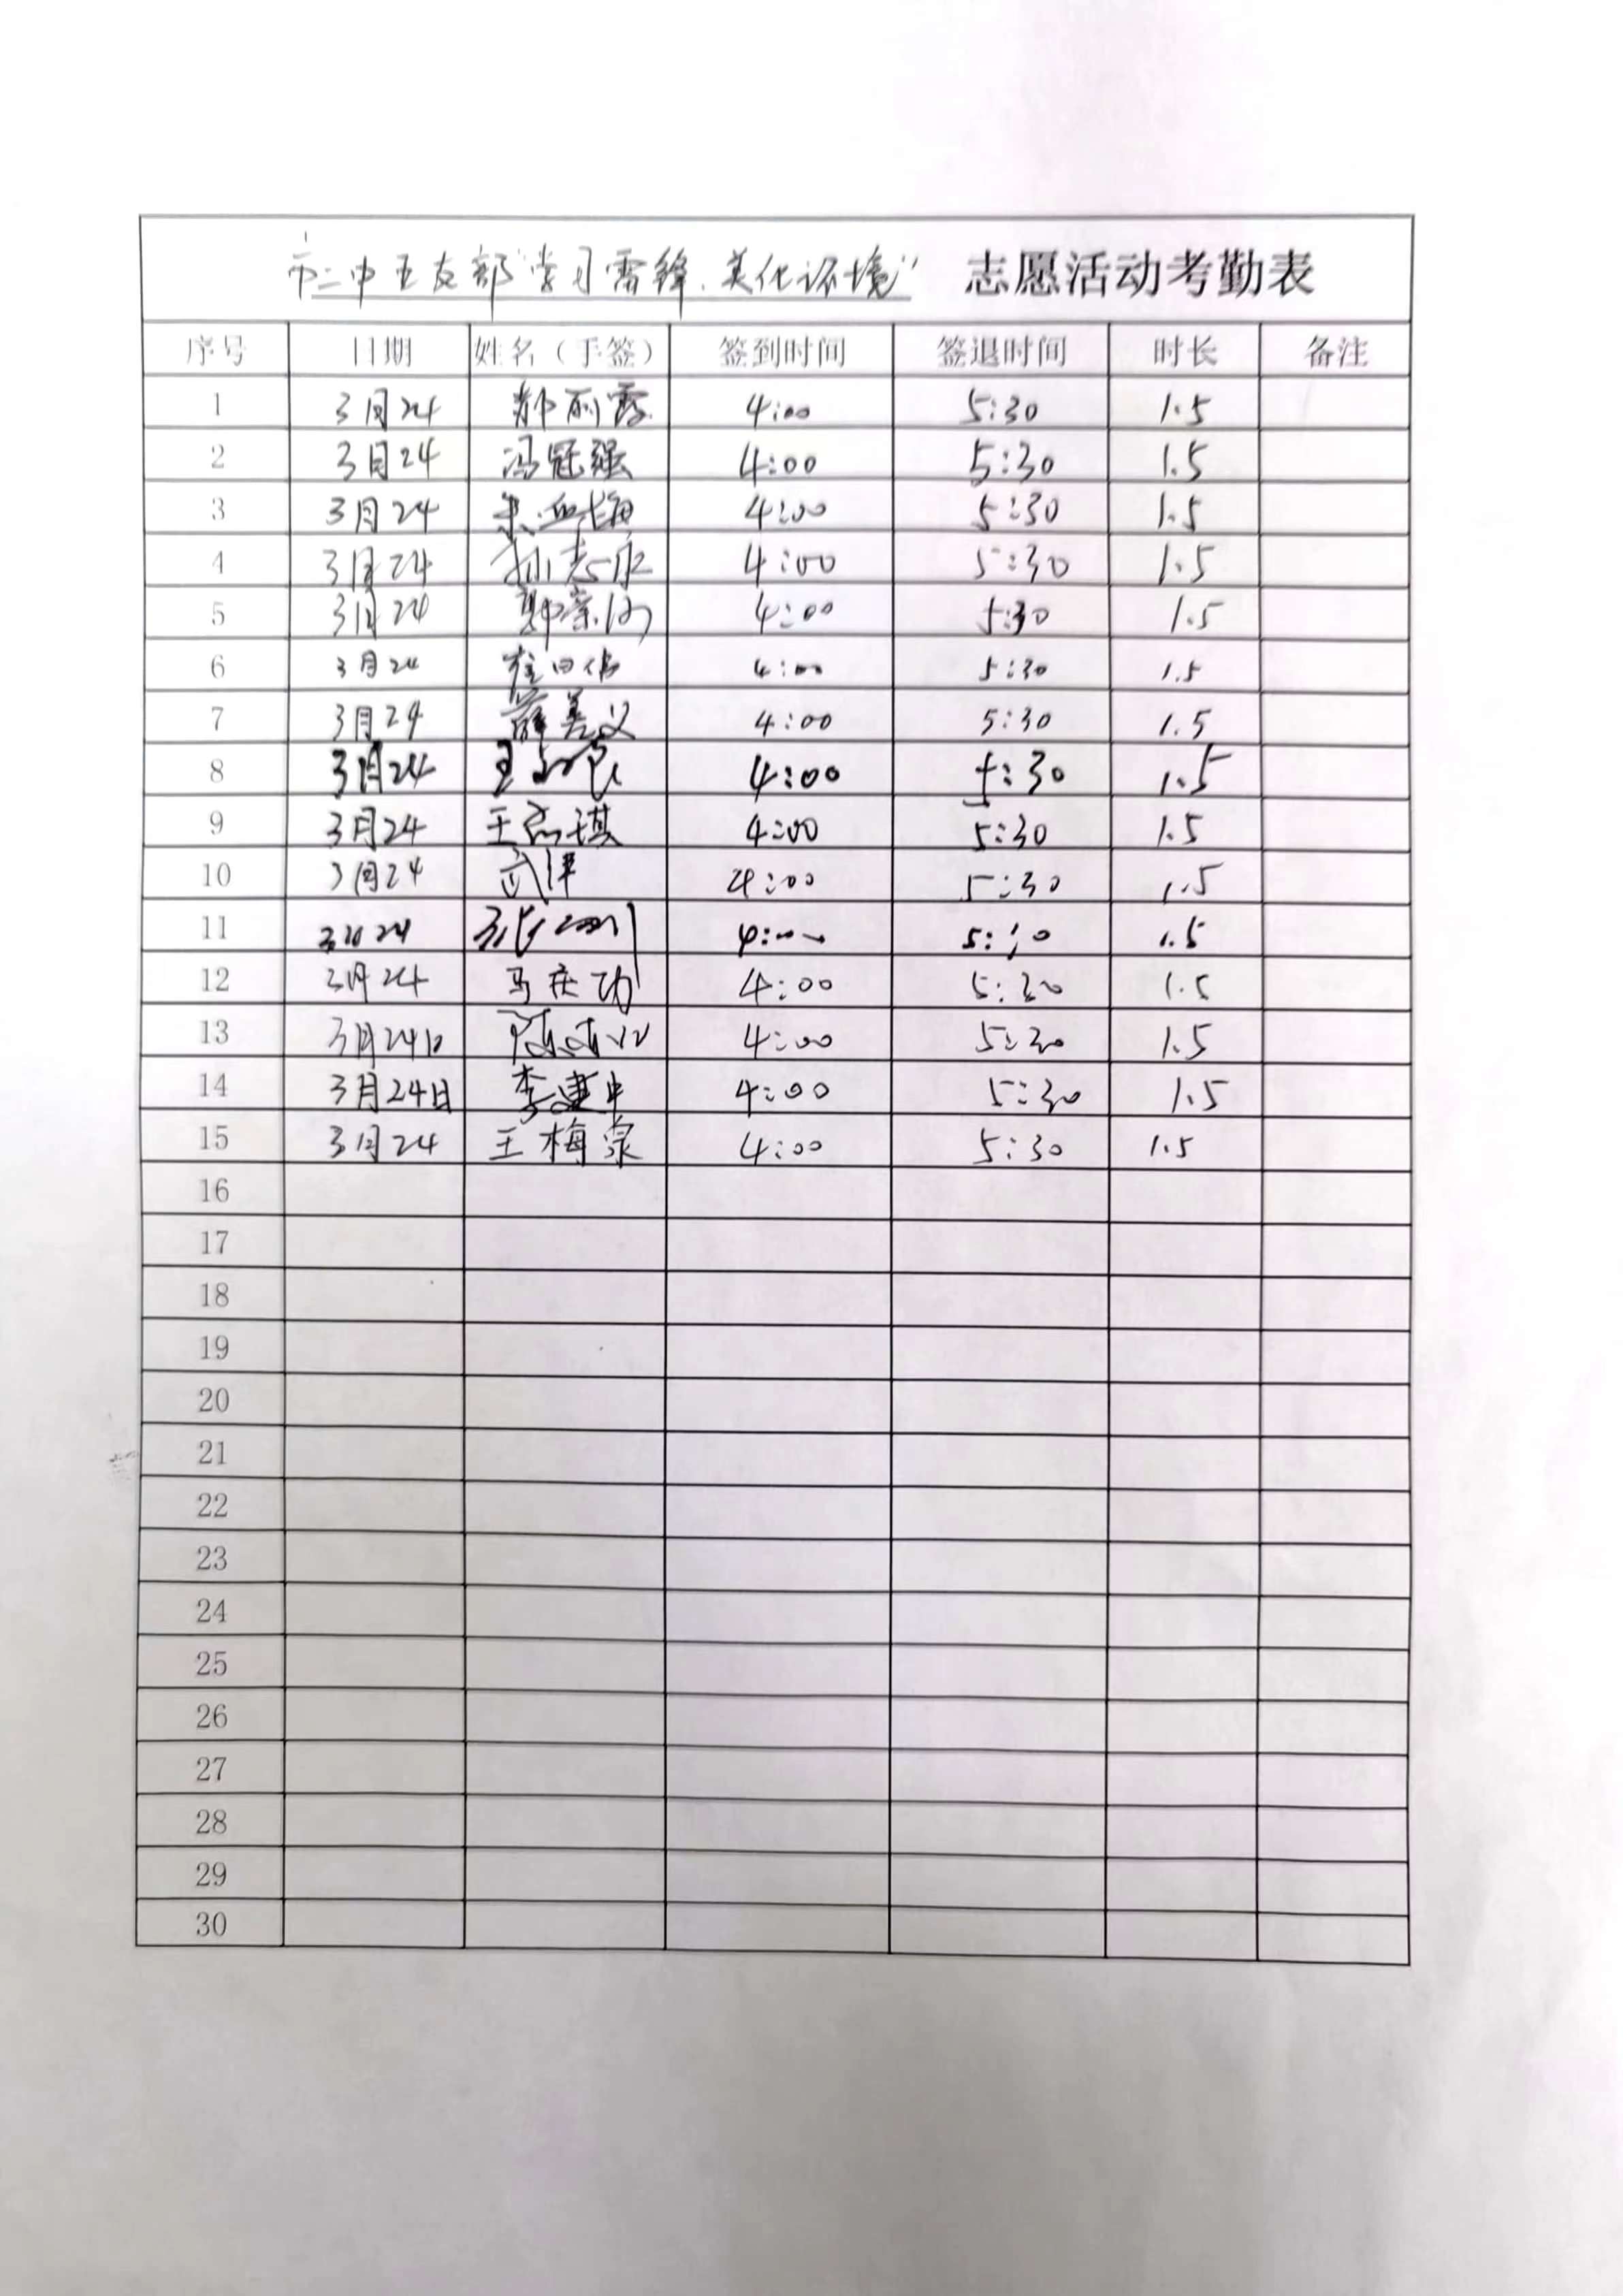 市二中五支部“学习雷锋、美化环境” 志愿活动考勤表
序号 日期 姓名（手签） 签到时间 签退时间 时长 备注
1 3月24 郝丽霞 4:00 5:30 1.5
2 3月24 冯冠强 4:00 5:30 1.5
3 3月24 4:00 5:30 1.5
4 3月24 孙志永 4:00 5:30 1.5
5 3月24 4:00 5:30 1.5
6 3月24 4:00 5:30 1.5
7 3月24 薛美义 4:00 5:30 1.5
8 3月24 4:00 5:30 1.5
9 3月24 4:00 5:30 1.5
10 3月24 武津 4:00 5:30 1.5
11 3月24 4:00 5:30 1.5
12 3月24 马庆功 4:00 5:30 1.5
13 3月24日 4:00 5:30 1.5
14 3月24日 李建中 4:00 5:30 1.5
15 3月24 王梅泉 4:00 5:30 1.5
16
17
18
19
20
21
22
23
24
25
26
27
28
29
30